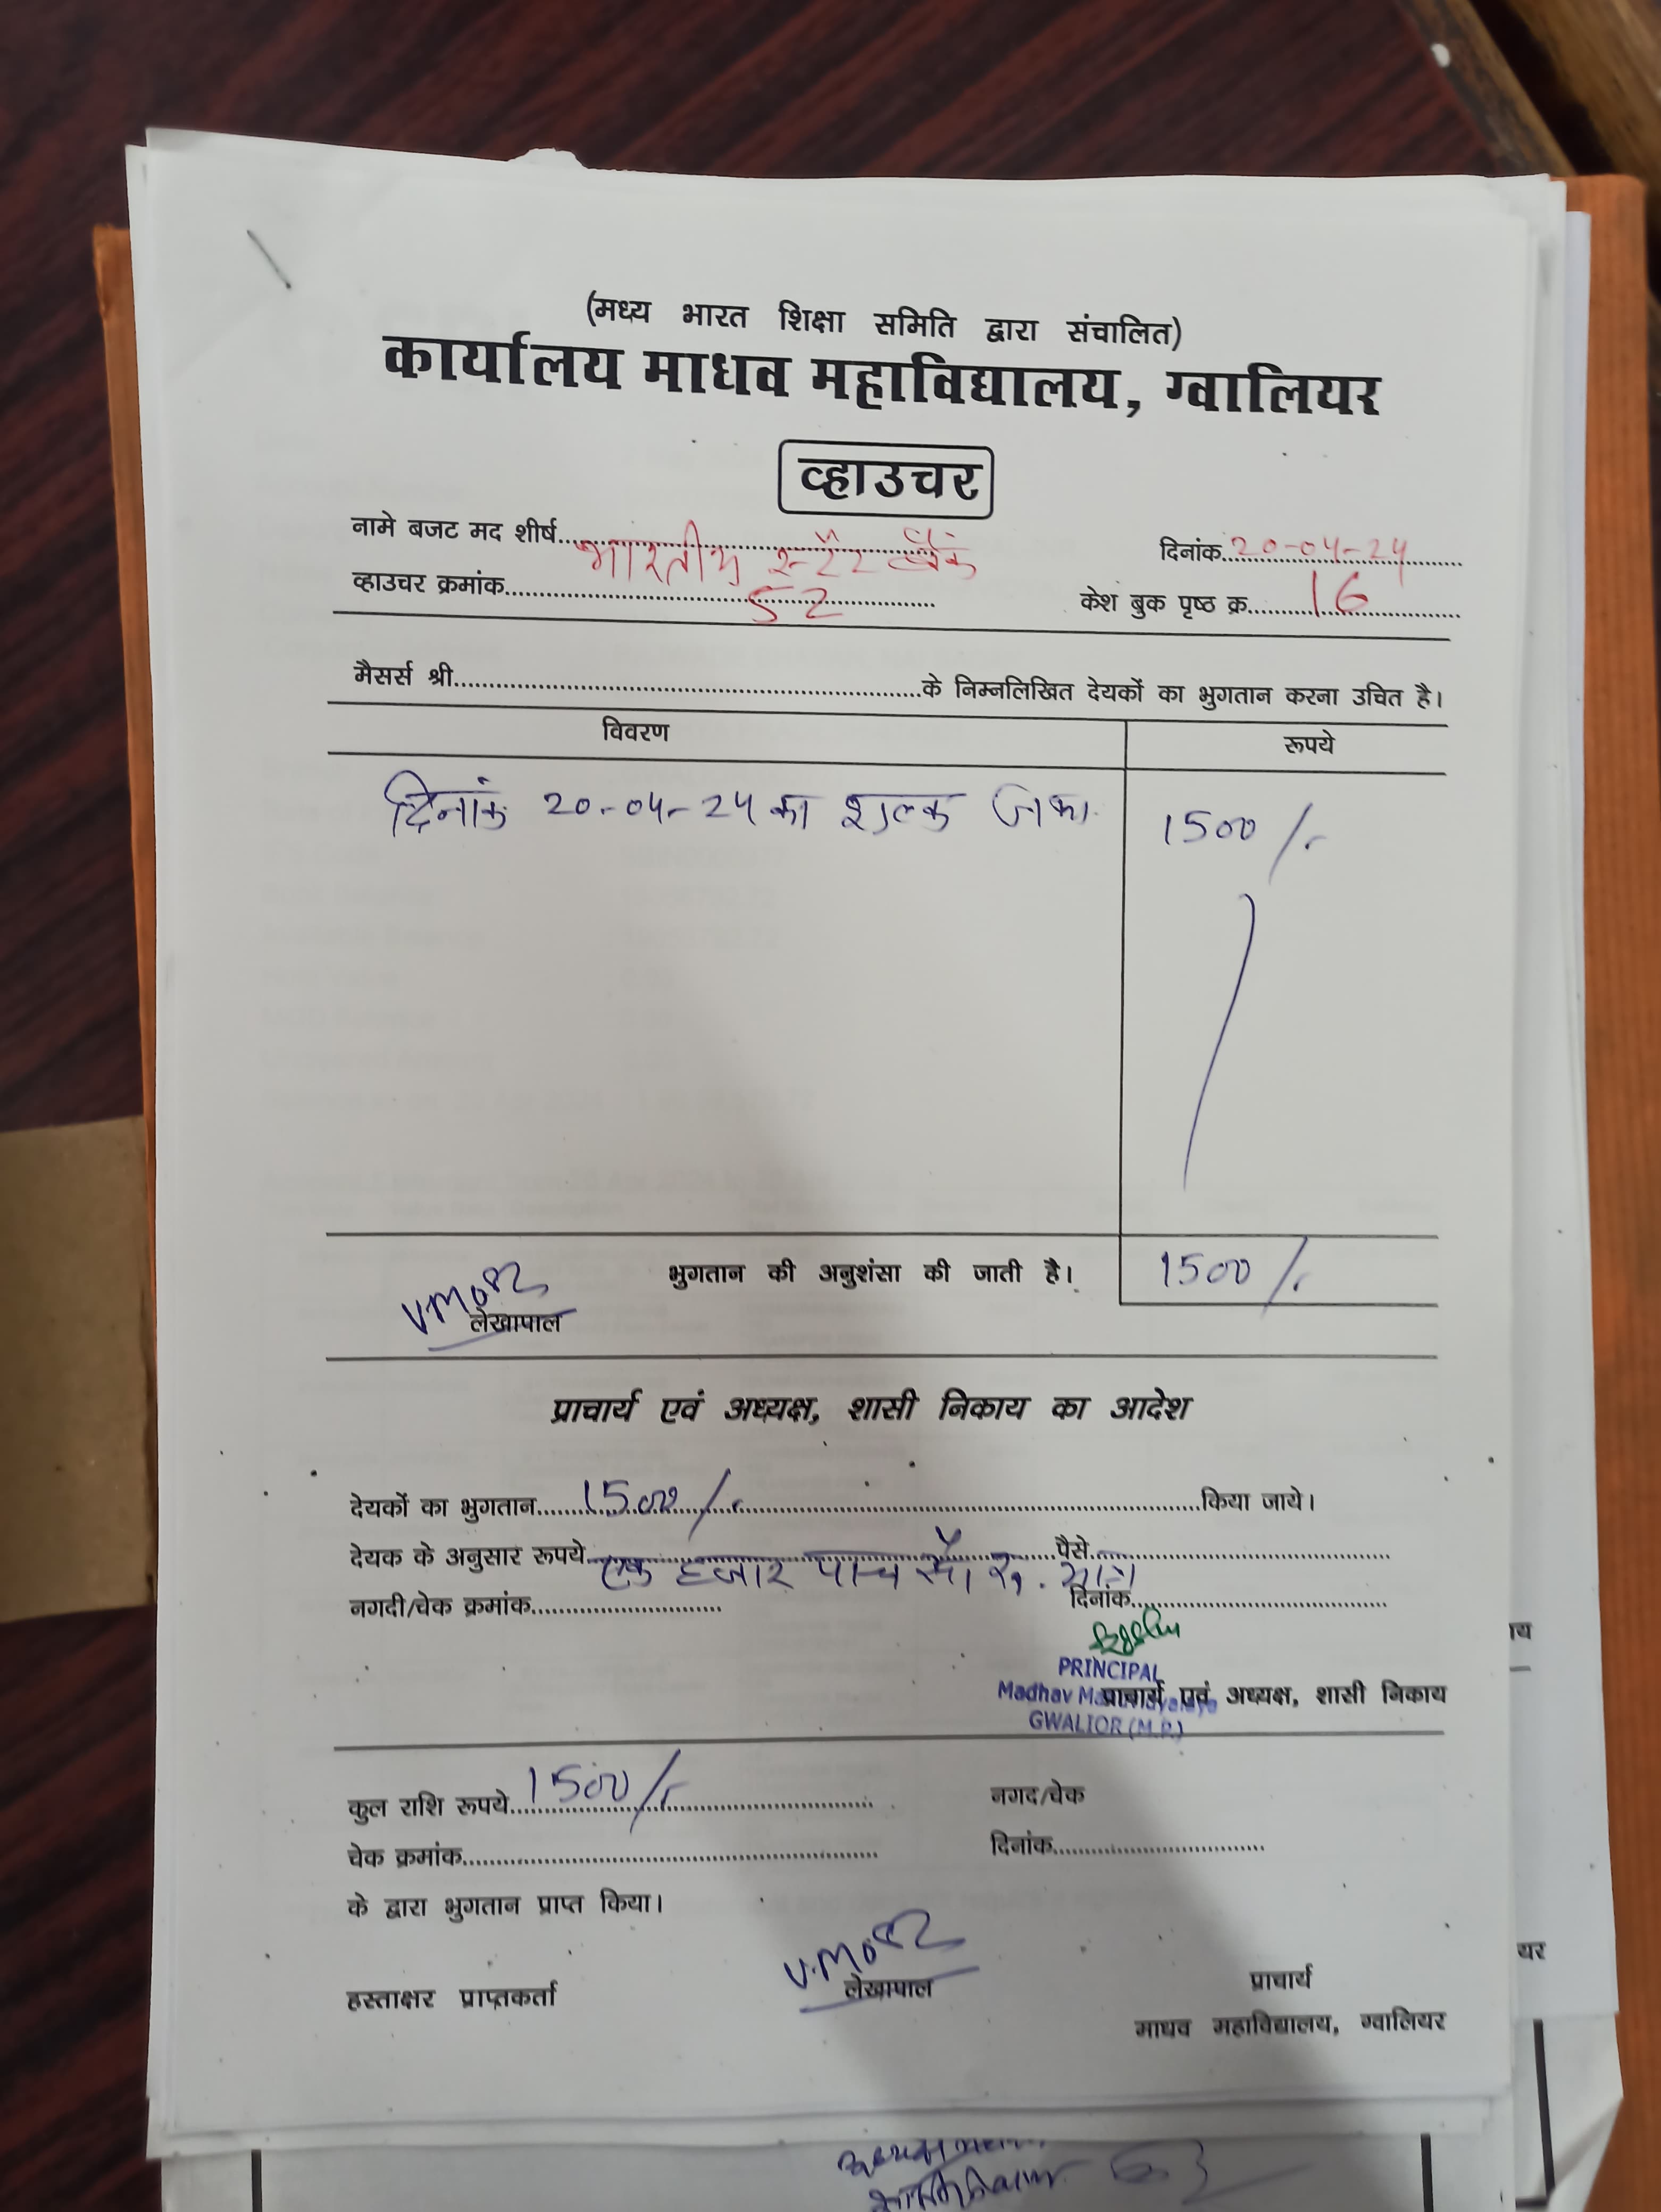 (मध्य भारत शिक्षा समिति द्वारा संचालित)
कार्यालय माधव महाविद्यालय, ग्वालियर
व्हाउचर
नामे बजट मद शीर्ष भारतीय स्टेट बैंक दिनांक 20-04-24
व्हाउचर क्रमांक 52 केश बुक पृष्ठ क्र. 16
मैसर्स श्री के निम्नलिखित देयकों का भुगतान करना उचित है।
विवरण रूपये
दिनांक 20-04-24 का शुल्क 1500/-
भुगतान की अनुशंसा की जाती है। 1500/-
लेखापाल
प्राचार्य एवं अध्यक्ष, शासी निकाय का आदेश
देयकों का भुगतान 1500/- किया जाये।
देयक के अनुसार रूपये एक हजार पान्च सौ रु. मात्र पैसे
नगदी/चेक क्रमांक दिनांक
PRINCIPAL
Madhav Mahavidyalaya
प्राचार्य एवं अध्यक्ष, शासी निकाय
GWALIOR (M.P.)
कुल राशि रूपये 1500/- नगद/चेक
चेक क्रमांक दिनांक
के द्वारा भुगतान प्राप्त किया।
हस्ताक्षर प्राप्तकर्ता लेखापाल प्राचार्य
माधव महाविद्यालय, ग्वालियर